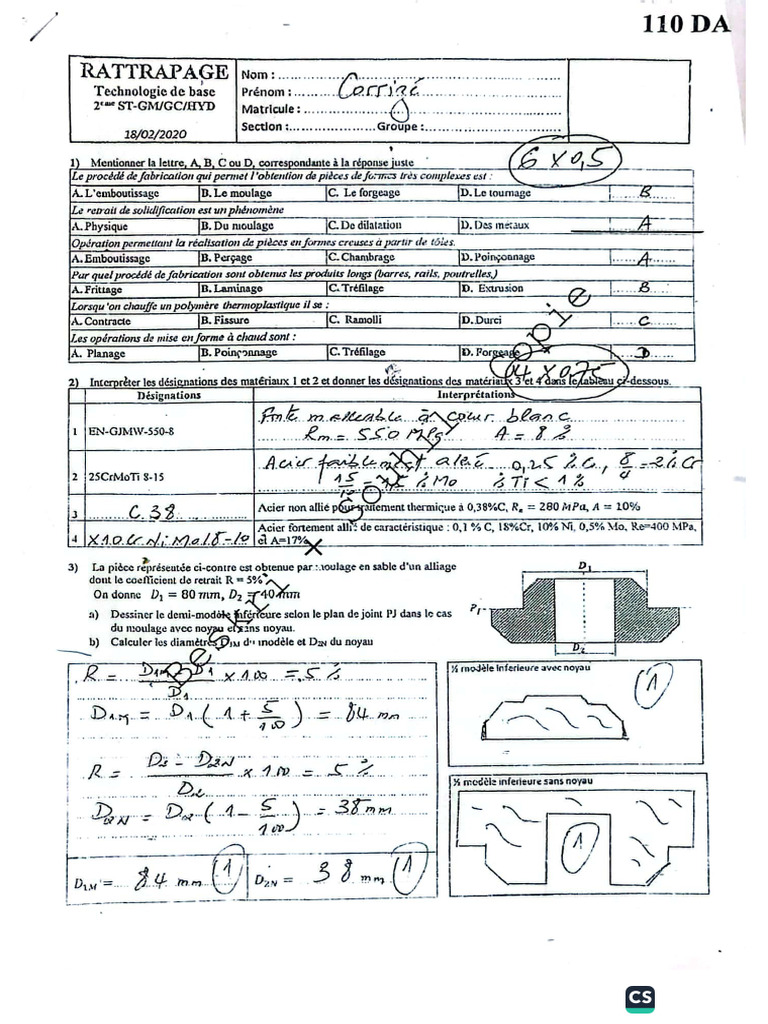 110 DA
RATTRAPAGE
Technologie de base
2ème ST-GM/GC/HYD
18/02/2020
Nom :
Prénom : Corrigé
Matricule :
Section : Groupe :
1) Mentionner la lettre, A, B, C ou D, correspondante à la réponse juste
6 x 0,5
Le procédé de fabrication qui permet l'obtention de pièces de formes très complexes est :
A. L'emboutissage B. Le moulage C. Le forgeage D. Le tournage B
Le retrait de solidification est un phénomène
A. Physique B. Du moulage C. De dilatation D. Des métaux A
Opération permettant la réalisation de pièces en formes creuses à partir de tôles.
A. Emboutissage B. Perçage C. Chambrage D. Poinçonnage A
Par quel procédé de fabrication sont obtenus les produits longs (barres, rails, poutrelles,)
A. Frittage B. Laminage C. Tréfilage D. Extrusion B
Lorsqu'on chauffe un polymère thermoplastique il se :
A. Contracte B. Fissure C. Ramolli D. Durci C
Les opérations de mise en forme à chaud sont :
A. Planage B. Poinçonnage C. Tréfilage D. Forgeage D
14 x 0,75
2) Interpréter les désignations des matériaux 1 et 2 et donner les désignations des matériaux 3 et 4 dans le tableau ci-dessous.
Désignations Interprétations
1 EN-GJMW-550-8 Fonte malleable à cœur blanc
Rm = 550 MPa A = 8 %
2 25CrMoTi 8-15 Acier faiblement alié 0,25 % C, 8/4 = 2% Cr
15/10 = 1,5 % Mo % Ti < 1 %
3 C 38 Acier non allié pour traitement thermique à 0,38%C, Re = 280 MPa, A = 10%
4 X10CrNiMo18-10 Acier fortement allié de caractéristique : 0,1 % C, 18%Cr, 10% Ni, 0,5% Mo, Re=400 MPa,
et A=17%
3) La pièce représentée ci-contre est obtenue par moulage en sable d'un alliage
dont le coefficient de retrait R = 5%
On donne D1 = 80 mm, D2 = 40 mm
a) Dessiner le demi-modèle inférieure selon le plan de joint PJ dans le cas
du moulage avec noyau et sans noyau.
b) Calculer les diamètres D1M du modèle et D2N du noyau
D1
PJ
D2
R = (D1M - D1)/D1 x 100 = 5 %
D1M = D1 (1 + 5/100) = 84 mm
R = (D2 - D2N)/D2 x 100 = 5 %
D2N = D2 (1 - 5/100) = 38 mm
D1M = 84 mm 1 D2N = 38 mm 1
½ modèle inferieure avec noyau
1
½ modèle inferieure sans noyau
1
CS